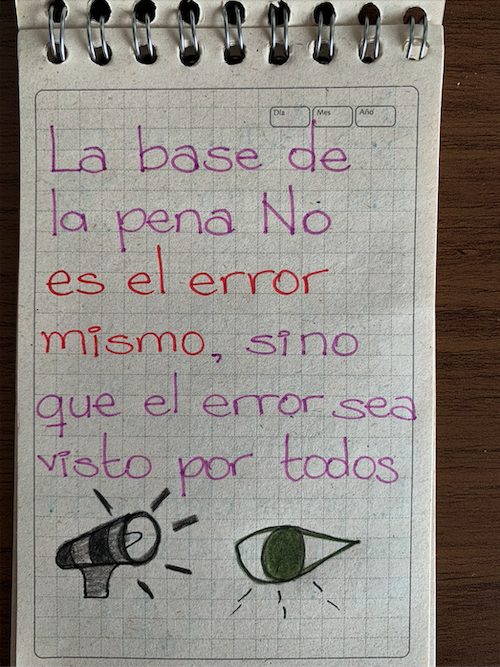 Día Mes Año
La base de
la pena No
es el error
mismo, sino
que el error sea
visto por todos